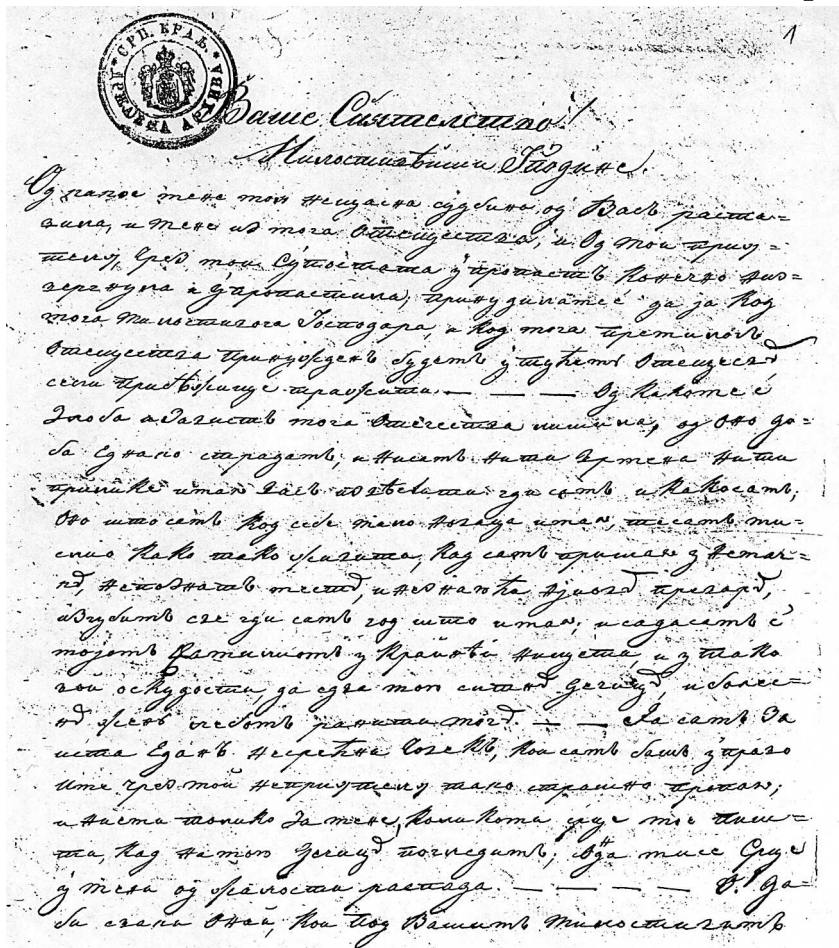 1
СРП. КРАЉ. ДРЖАВНА АРХИВА
Ваше Сіятелство!
Милостивѣйши Гподине.
Од како є мене моя несщасна судбина од Васъ раста=
вила, и мене из мога Отечества, и Од мои прия=
теля, чрез мои Супостата у пропасть конечно низ=
вергнула и упропастила, принудила мее да я код
мога милостивога Господара, и код мога премилогъ
Отечества принужденъ будемъ у туђемъ Отечествꙋ
себи прибѣжище тражити. — — — Од како ме є
Злоба и Завистъ мога Отечества лишила, од оно до=
ба Еднако страдамъ, и нисамъ нити времена нити
прилике имао Васъ извѣстити гди самъ и како самъ;
Оно што самъ код себе мало новаца имао, те самъ ми=
слио како тако живити, кад самъ пришао у
непознатъ местꙋ, и незнаюћи
изгубимъ све гди самъ год што имао; и сада самъ с
моіомъ Фамиліомъ у Крайнѣй нищети и у тако=
вой оскудости, да едва мою ситнꙋ Децицꙋ, и болес=
нꙋ женꙋ лебомъ ранити могꙋ. — — Я самъ За
иста Еданъ несрећна Човекъ, кои самъ башъ управо
чрез мой неприятеля тако страшно пропао;
и ниста толико За мене, колико ми срце мое
кад на мою Децицꙋ погледимъ; Онда ми се Срце
у мени од жалости распада. — — — — О! Да
би знали Онай, кои под Вашимъ милостивымъ